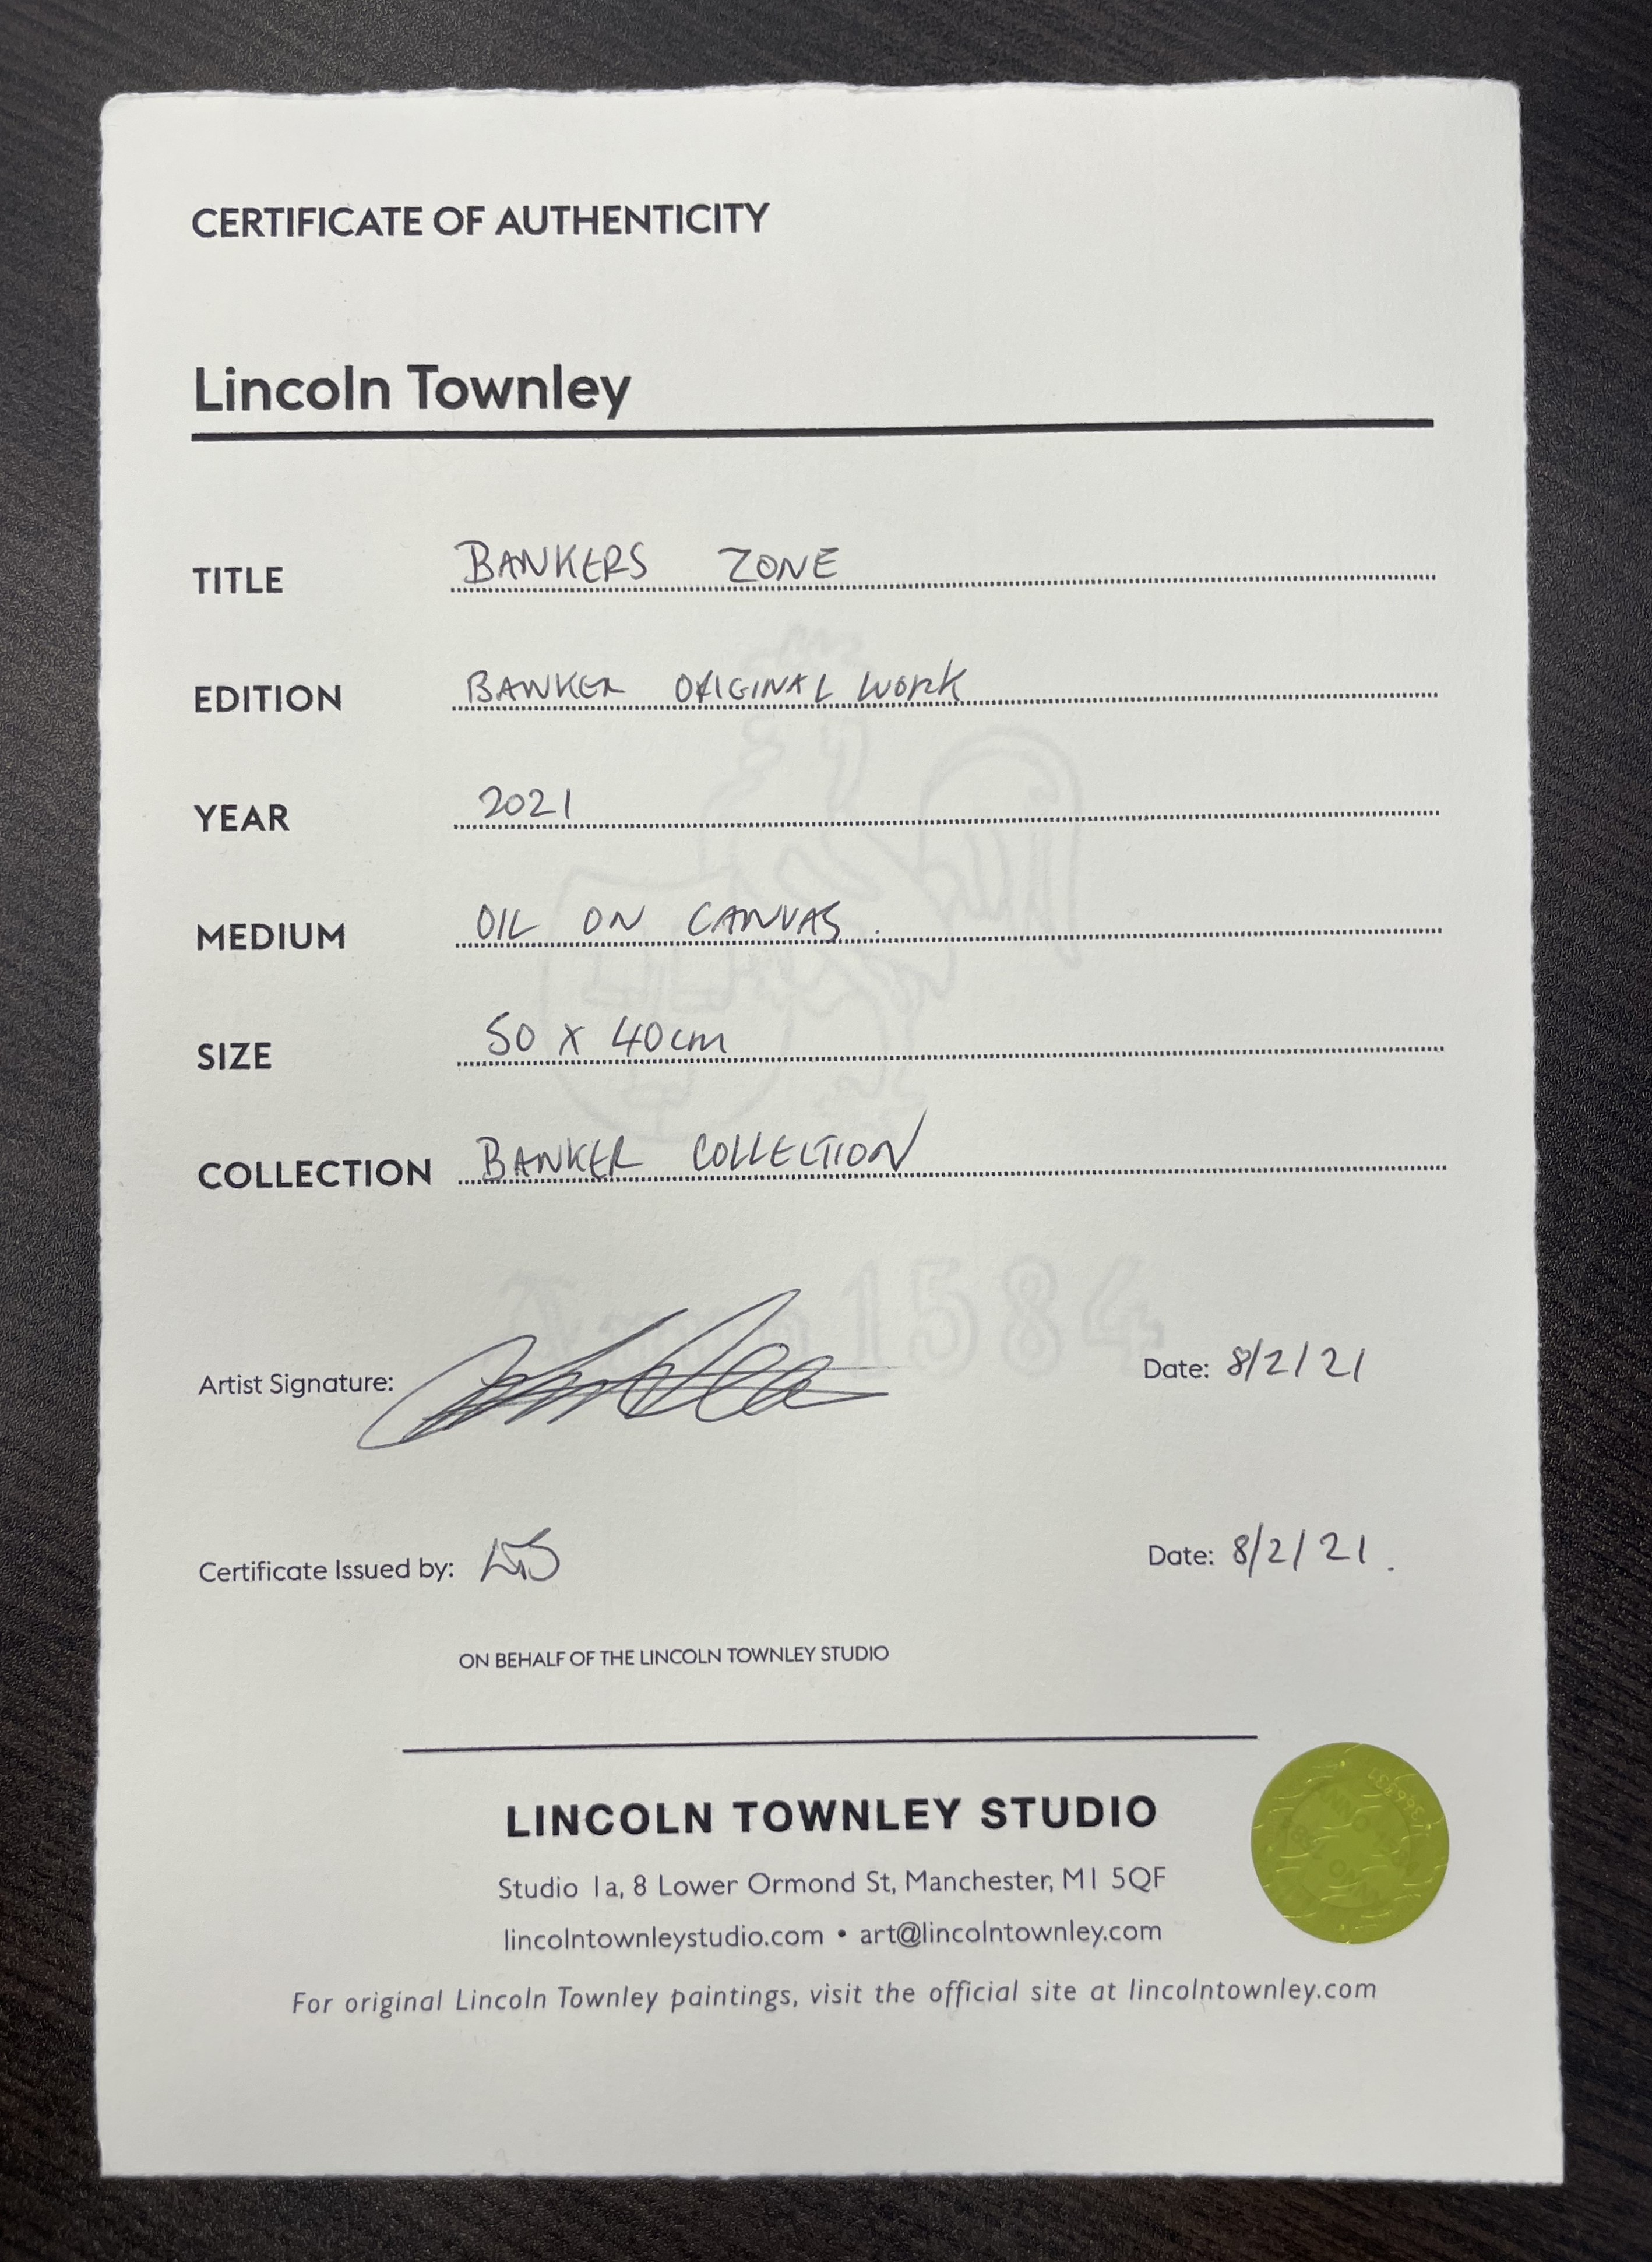 CERTIFICATE OF AUTHENTICITY
Lincoln Townley
TITLE BANKERS ZONE
EDITION BANKER ORIGINAL WORK
YEAR 2021
MEDIUM OIL ON CANVAS.
SIZE 50 x 40cm
COLLECTION BANKER COLLECTION
Anno 1584
Artist Signature: Date: 8/2/21
Certificate Issued by: Date: 8/2/21.
ON BEHALF OF THE LINCOLN TOWNLEY STUDIO
LINCOLN TOWNLEY STUDIO
Studio 1a, 8 Lower Ormond St, Manchester, M1 5QF
lincolntownleystudio.com • art@lincolntownley.com
For original Lincoln Townley paintings, visit the official site at lincolntownley.com